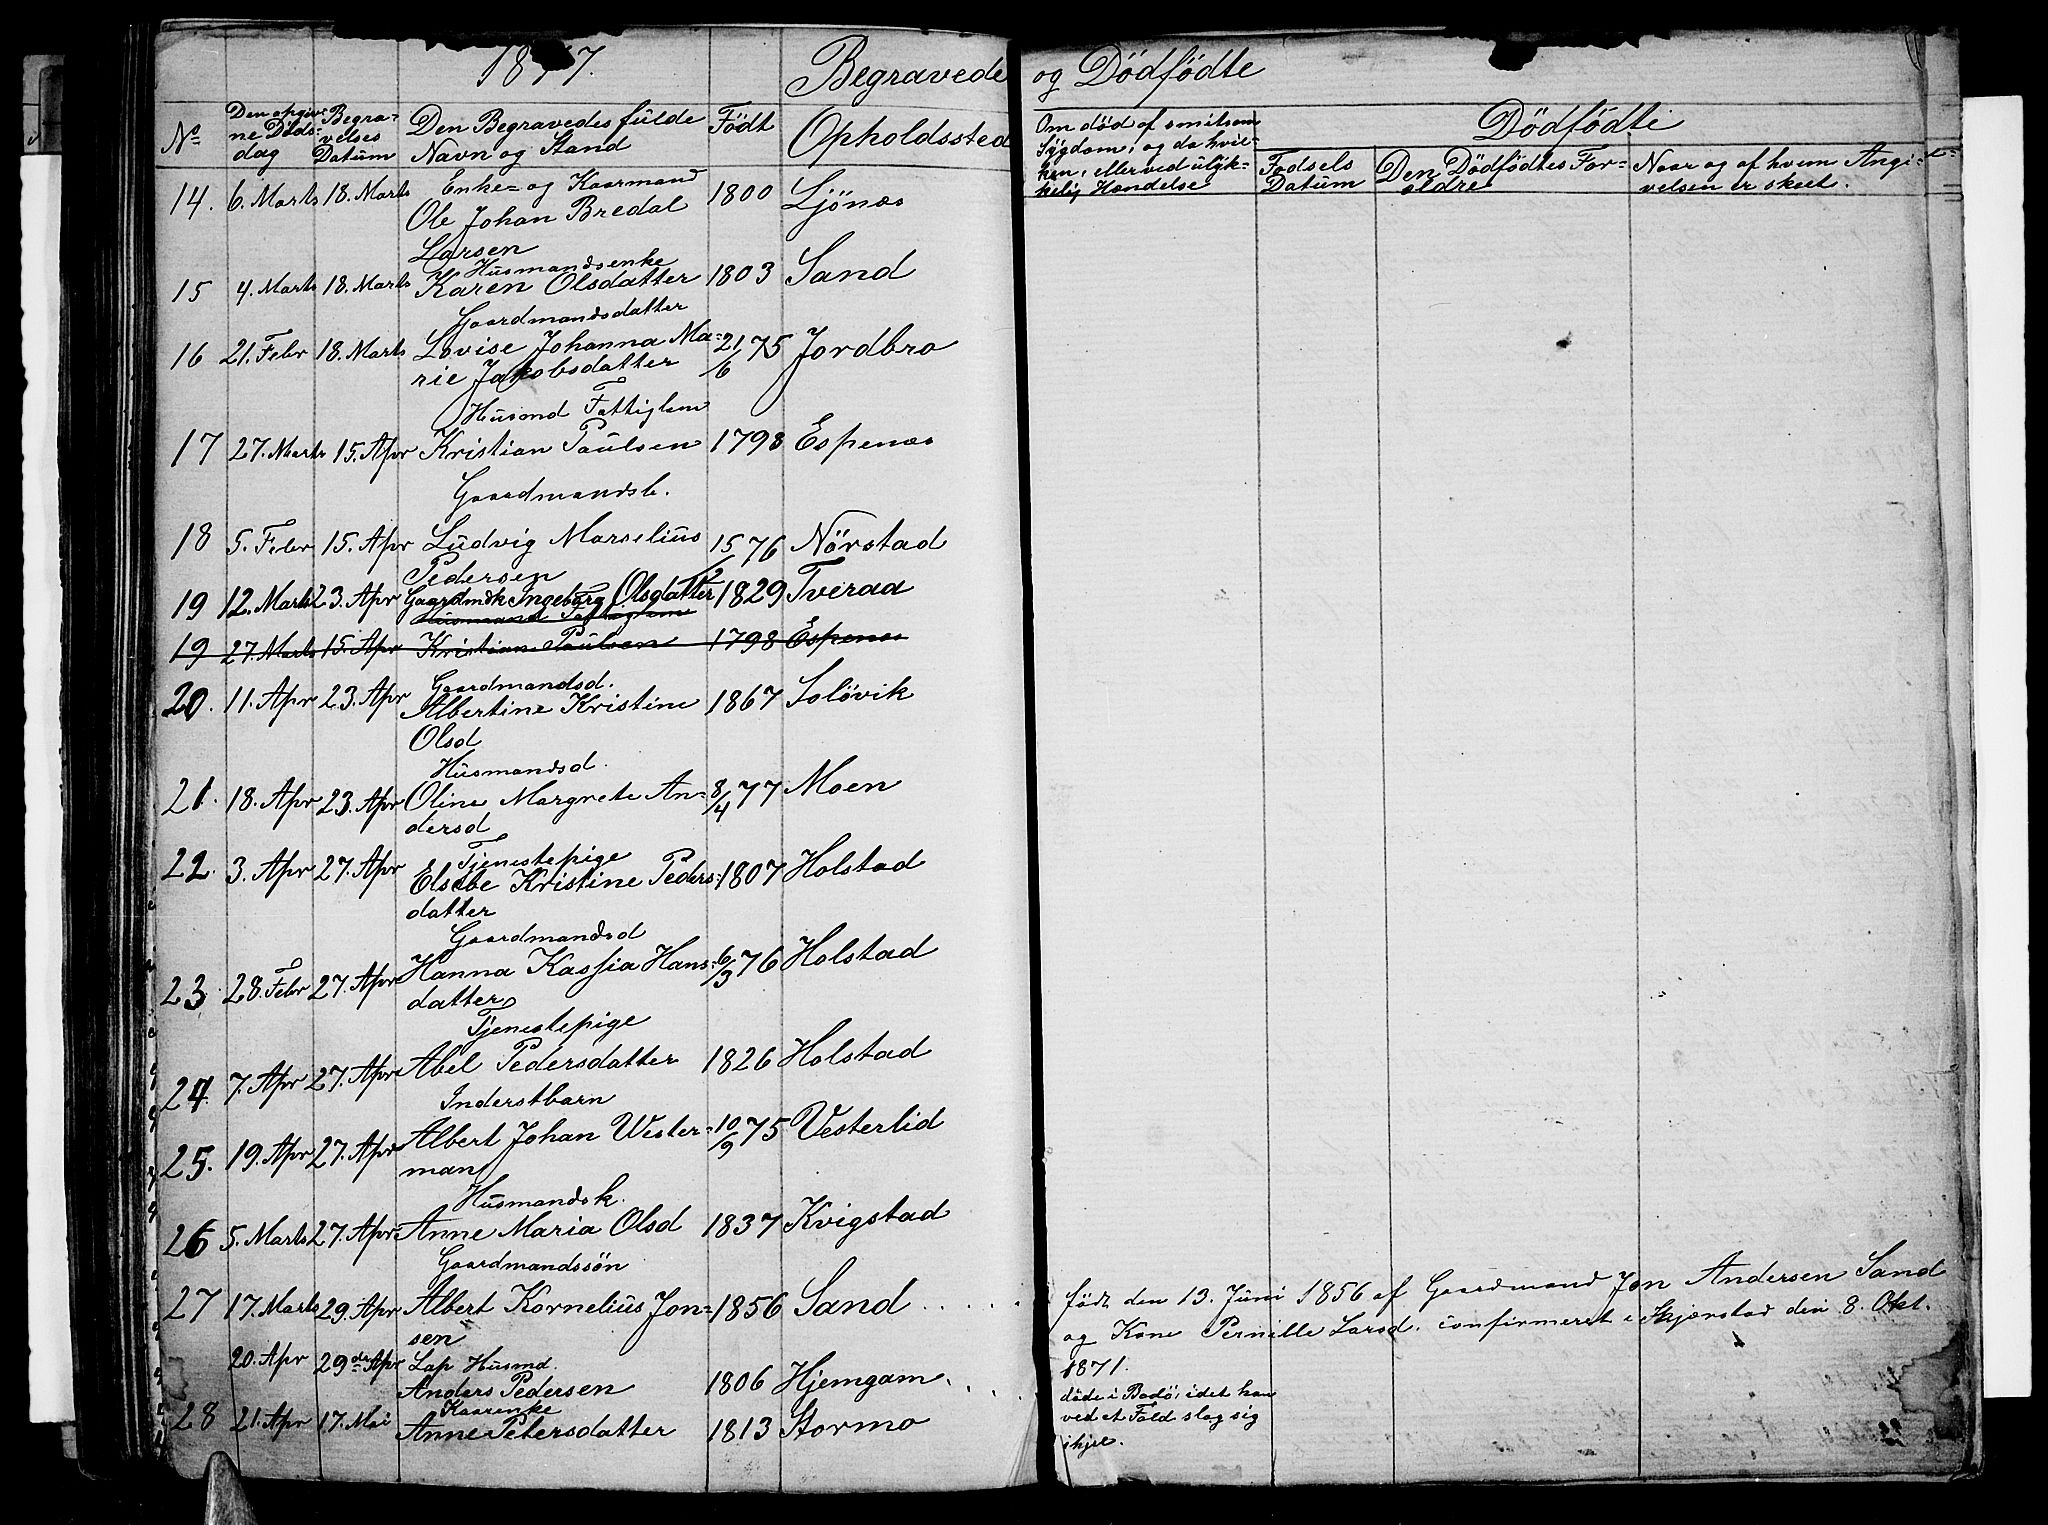 1877.
Begravede
og Dödfødte
No
Den opgiv-
ne Döds-
dag
Begra-
velses
Datum
Den Begravedes fulde
Navn og Stand
Født
Opholdssted
Om död af smitsom
Sygdom, og da hvil-
ken, eller ved ulyk-
kelig Hændelse
Dödfödte
Fødsels
Datum
Den Dödfödtes For-
ældre
Naar og af hvem Angi-
velsen er skeet.
Enke- og Kaarmand
14. 6. Marts 18. Marts Ole Johan Bredal 1800 Ljönæs
Larsen
Husmandsenke
15 4. Marts 18. Marts Karen Olsdatter 1803 Sand
Gaardmandsdatter
16 21. Febr 18. Marts Lovise Johanna Ma- 21/6 75 Jordbro
rie Jakobsdatter
Husmd Fattiglem
17 27. Marts 15. Apr Kristian Paulsen 1798 Espenæs
Gaardmandsb.
18 5. Febr 15. Apr Ludvig Marselius 15/12 76 Nörstad
Pedersen
19 12. Marts 23. Apr Gaardmdk Ingeborg Olsdatter 1829 Tveraa
Husmand Fattiglem
19 27. Marts 15. Apr Kristian Paulsen 1798 Espenæs
Gaardmandsd.
20. 11. Apr 23. Apr Albertine Kristine 1867 Solövik
Olsd
Husmandsd.
21. 18. Apr 23. Apr Oline Margrete An- 8/4 77 Moen
dersd
Tjenestepige
22. 3. Apr 27. Apr Elsebe Kristine Peders- 1807 Holstad
datter
Gaardmandsd
23. 28. Febr 27. Apr Hanna Kassia Hans- 6/3 76 Holstad
datter
Tjenestepige
24. 7. Apr 27. Apr Abel Pedersdatter 1826 Holstad
Inderstbarn
25. 19. Apr 27. Apr Albert Johan Wester- 10/9 75 Vesterlid
man
Husmandsk.
26 5. Marts 27. Apr Anne Maria Olsd 1837 Kvigstad
Gaardmandssön
27 17. Marts 29. Apr Albert Kornelius Jon- 1856 Sand . . . . . .
sen
20. Apr 29de Apr Lap Husmd.
Anders Pedersen 1806 Hjemgam . . . .
Kaarenke
28 21. Apr 17. Mai Anne Petersdatter 1813 Stormo
født den 13. Juni 1856 af Gaardmand Jon Andersen Sand
og Kone Pernille Larsd. confirmeret i Skjerstad den 8. Okt.
1871.
döde i Bodö, idet han
ved et Fald slog sig
ihjel.